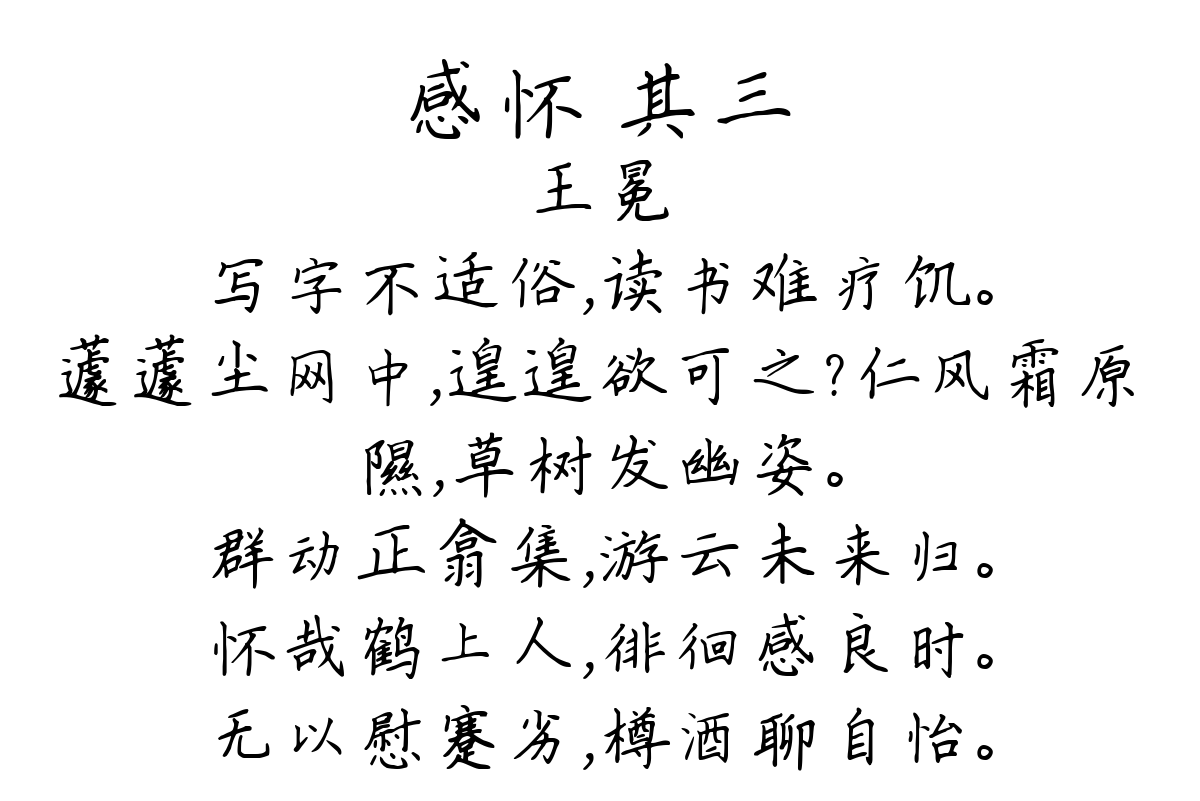 感怀 其三
王冕
写字不适俗,读书难疗饥。
蘧蘧尘网中,遑遑欲可之?仁风霜原
隰,草树发幽姿。
群动正翕集,游云未来归。
怀哉鹤上人,徘徊感良时。
无以慰蹇劣,樽酒聊自怡。